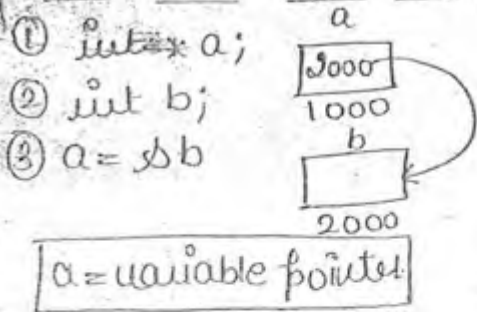 ① int* a;
② int b;
③ a = &b
a
2000
1000
b
2000
a = variable pointer